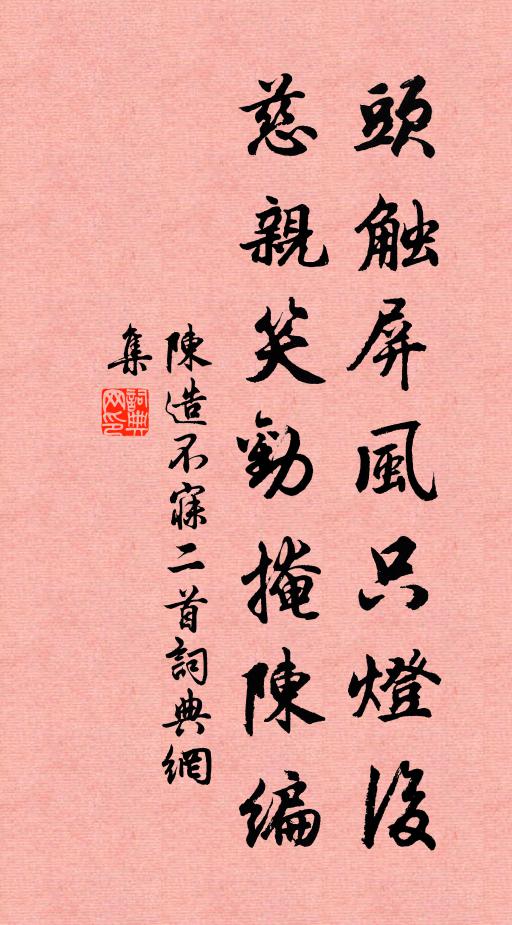 頭触屏風只燈後
慈親笑勸掩陳編
陳造不寐二首詞典網
集
詞典网印